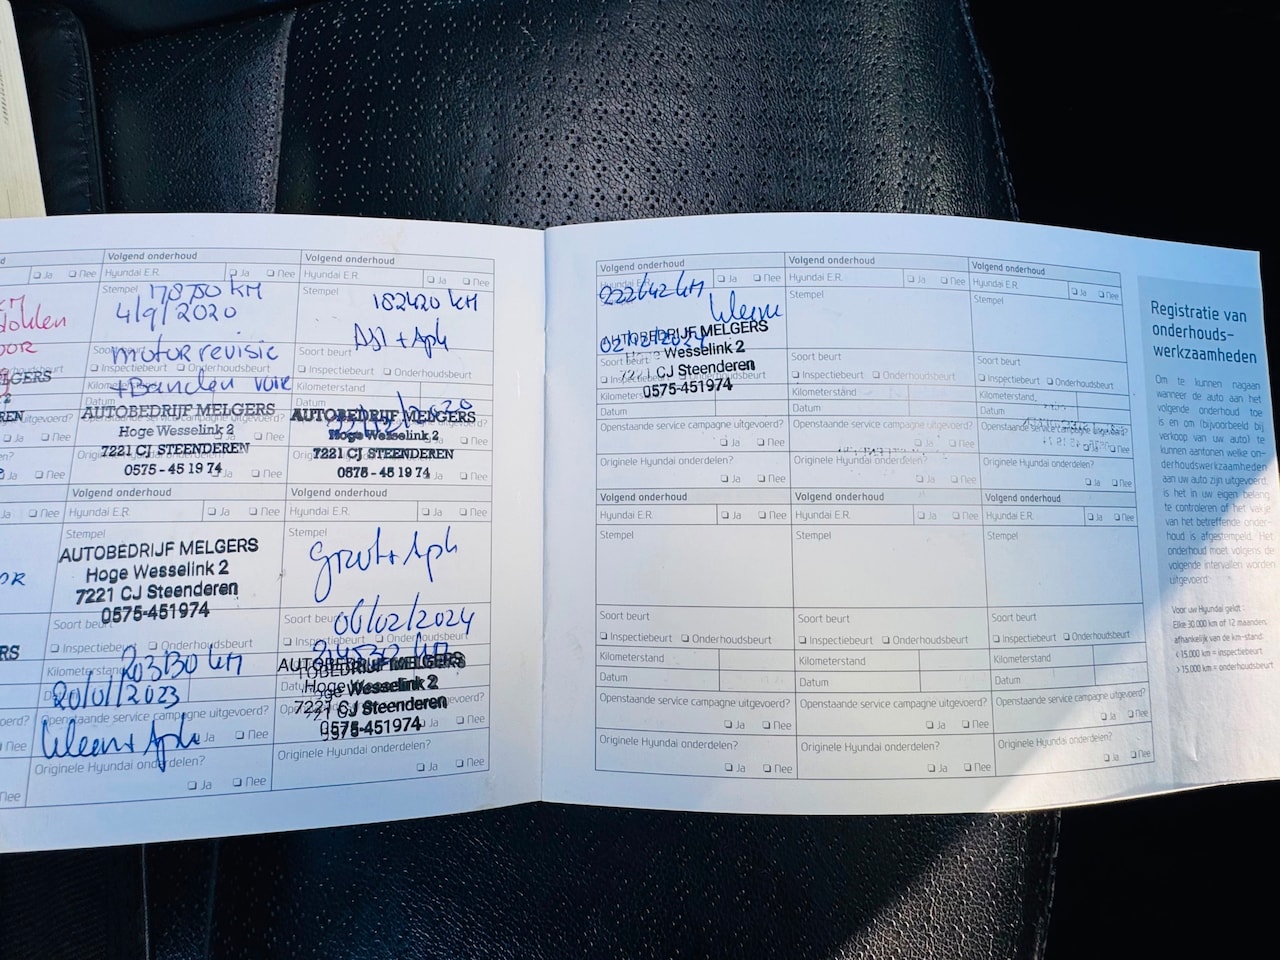 Volgend onderhoud
Hyundai E.R.
Ja Nee
Stempel
178780 KM
4/9/2020
motor revisie
+ Banden voor
AUTOBEDRIJF MELGERS
Hoge Wesselink 2
7221 CJ STEENDEREN
0575 - 45 19 74
Ja Nee
Volgend onderhoud
Hyundai E.R.
Ja Nee
Stempel
182420 KM
+ Apk
Soort beurt
Inspectiebeurt Onderhoudsbeurt
Kilometerstand
Datum
AUTOBEDRIJF MELGERS
Hoge Wesselink 2
7221 CJ STEENDEREN
0575 - 45 19 74
Ja Nee
Volgend onderhoud
Hyundai E.R.
Ja Nee
Stempel
AUTOBEDRIJF MELGERS
Hoge Wesselink 2
7221 CJ Steenderen
0575-451974
Soort beurt
Inspectiebeurt Onderhoudsbeurt
Kilometerstand
203130 KM
20/01/2023
Openstaande service campagne uitgevoerd?
Kleen + Apk
Ja
Originele Hyundai onderdelen?
Ja Nee
Volgend onderhoud
Hyundai E.R.
Ja Nee
Stempel
Groot + Apk
Soort beurt
06/02/2024
Inspectiebeurt Onderhoudsbeurt
AUTOBEDRIJF MELGERS
Hoge Wesselink 2
7221 CJ Steenderen
0575-451974
Ja Nee
Originele Hyundai onderdelen?
Ja Nee
Volgend onderhoud
Hyundai E.R.
Ja Nee
222642 KM
Kleen
AUTOBEDRIJF MELGERS
Hoge Wesselink 2
7221 CJ Steenderen
0575-451974
Datum
Openstaande service campagne uitgevoerd?
Ja Nee
Originele Hyundai onderdelen?
Ja Nee
Volgend onderhoud
Hyundai E.R.
Ja Nee
Stempel
Soort beurt
Inspectiebeurt Onderhoudsbeurt
Kilometerstand
Datum
Openstaande service campagne uitgevoerd?
Ja Nee
Originele Hyundai onderdelen?
Ja Nee
Volgend onderhoud
Hyundai E.R.
Ja Nee
Stempel
Soort beurt
Inspectiebeurt Onderhoudsbeurt
Kilometerstand
Datum
Openstaande service campagne uitgevoerd?
Ja Nee
Originele Hyundai onderdelen?
Ja Nee
Volgend onderhoud
Hyundai E.R.
Ja Nee
Stempel
Soort beurt
Inspectiebeurt Onderhoudsbeurt
Kilometerstand
Datum
Openstaande service campagne uitgevoerd?
Ja Nee
Originele Hyundai onderdelen?
Ja Nee
Volgend onderhoud
Hyundai E.R.
Ja Nee
Stempel
Soort beurt
Inspectiebeurt Onderhoudsbeurt
Kilometerstand
Datum
Openstaande service campagne uitgevoerd?
Ja Nee
Originele Hyundai onderdelen?
Ja Nee
Volgend onderhoud
Hyundai E.R.
Ja Nee
Stempel
Soort beurt
Inspectiebeurt Onderhoudsbeurt
Kilometerstand
Datum
Openstaande service campagne uitgevoerd?
Ja Nee
Originele Hyundai onderdelen?
Ja Nee
Registratie van
onderhouds-
werkzaamheden
Om te kunnen nagaan
wanneer de auto aan het
volgende onderhoud toe
is en om (bijvoorbeeld bij
verkoop van uw auto) te
kunnen aantonen welke on-
derhoudswerkzaamheden
aan uw auto zijn uitgevoerd,
is het in uw eigen belang
te controleren of het vakje
van het betreffende onder-
houd is afgestempeld. Het
onderhoud moet volgens de
volgende intervallen worden
uitgevoerd:
Voor uw Hyundai geldt :
Elke 30.000 km of 12 maanden,
afhankelijk van de km-stand.
< 15.000 km = inspectiebeurt
> 15.000 km = onderhoudsbeurt